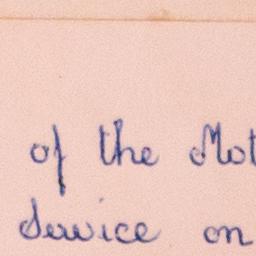 of the Mot
Service on